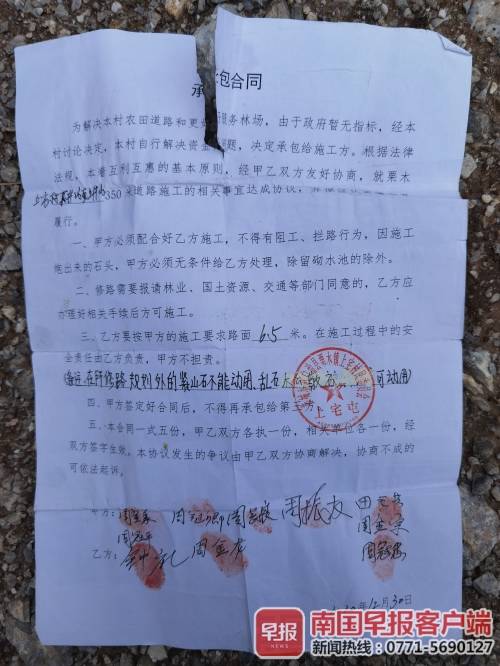 承包合同
为解决本村农田道路和更 服务林场，由于政府暂无指标，经本
村讨论决定，本村自行解决资金 题，决定承包给施工方。根据法律
法规，本着互利互惠的基本原则，经甲乙双方友好协商，就栗木
350米道路施工的相关事宜达成协议，
履行。
一、甲方必须配合好乙方施工，不得有阻工、拦路行为，因施工
炮出来的石头，甲方必须无条件给乙方处理，除留砌水池的除外。
二、修路需要报请林业、国土资源、交通等部门同意的，乙方应
办理好相关手续后方可施工。
三、乙方要按甲方的施工要求路面6.5米。在施工过程中的安
全责任由乙方负责，甲方不担责。
在所修路规划外的 山石不能动用、乱石 可动用)
四、甲方签定好合同后，不得再承包给第三方。
五、本合同一式五份，甲乙双方各执一份，相关单位各一份，经
双方签字生效。本协议发生的争议由甲乙双方协商解决，协商不成的
可依法起诉。
上宅屯
甲方： 周振友
乙方： 周金
12月30日
早报 南国早报客户端
新闻热线：0771-5690127